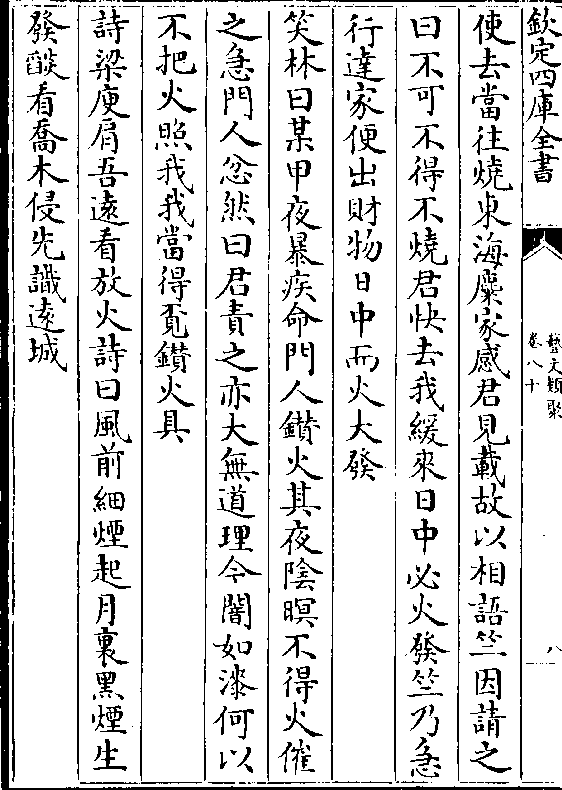 欽定四庫全書
藝文類聚
卷八十
八
使去當往燒東海麋家感君見載故以相語竺因請之
曰不可不得不燒君快去我緩來日中必火發竺乃急
行達家便出財物日中而火大發
笑林曰某甲夜暴疾命門人鑚火其夜陰暝不得火催
之急門人忿然曰君責之亦大無道理今闇如漆何以
不把火照我我當得覓鑚火具
詩梁庾肩吾遠看放火詩曰風前細煙起月裏黑煙生
發燄看喬木侵光識逺城